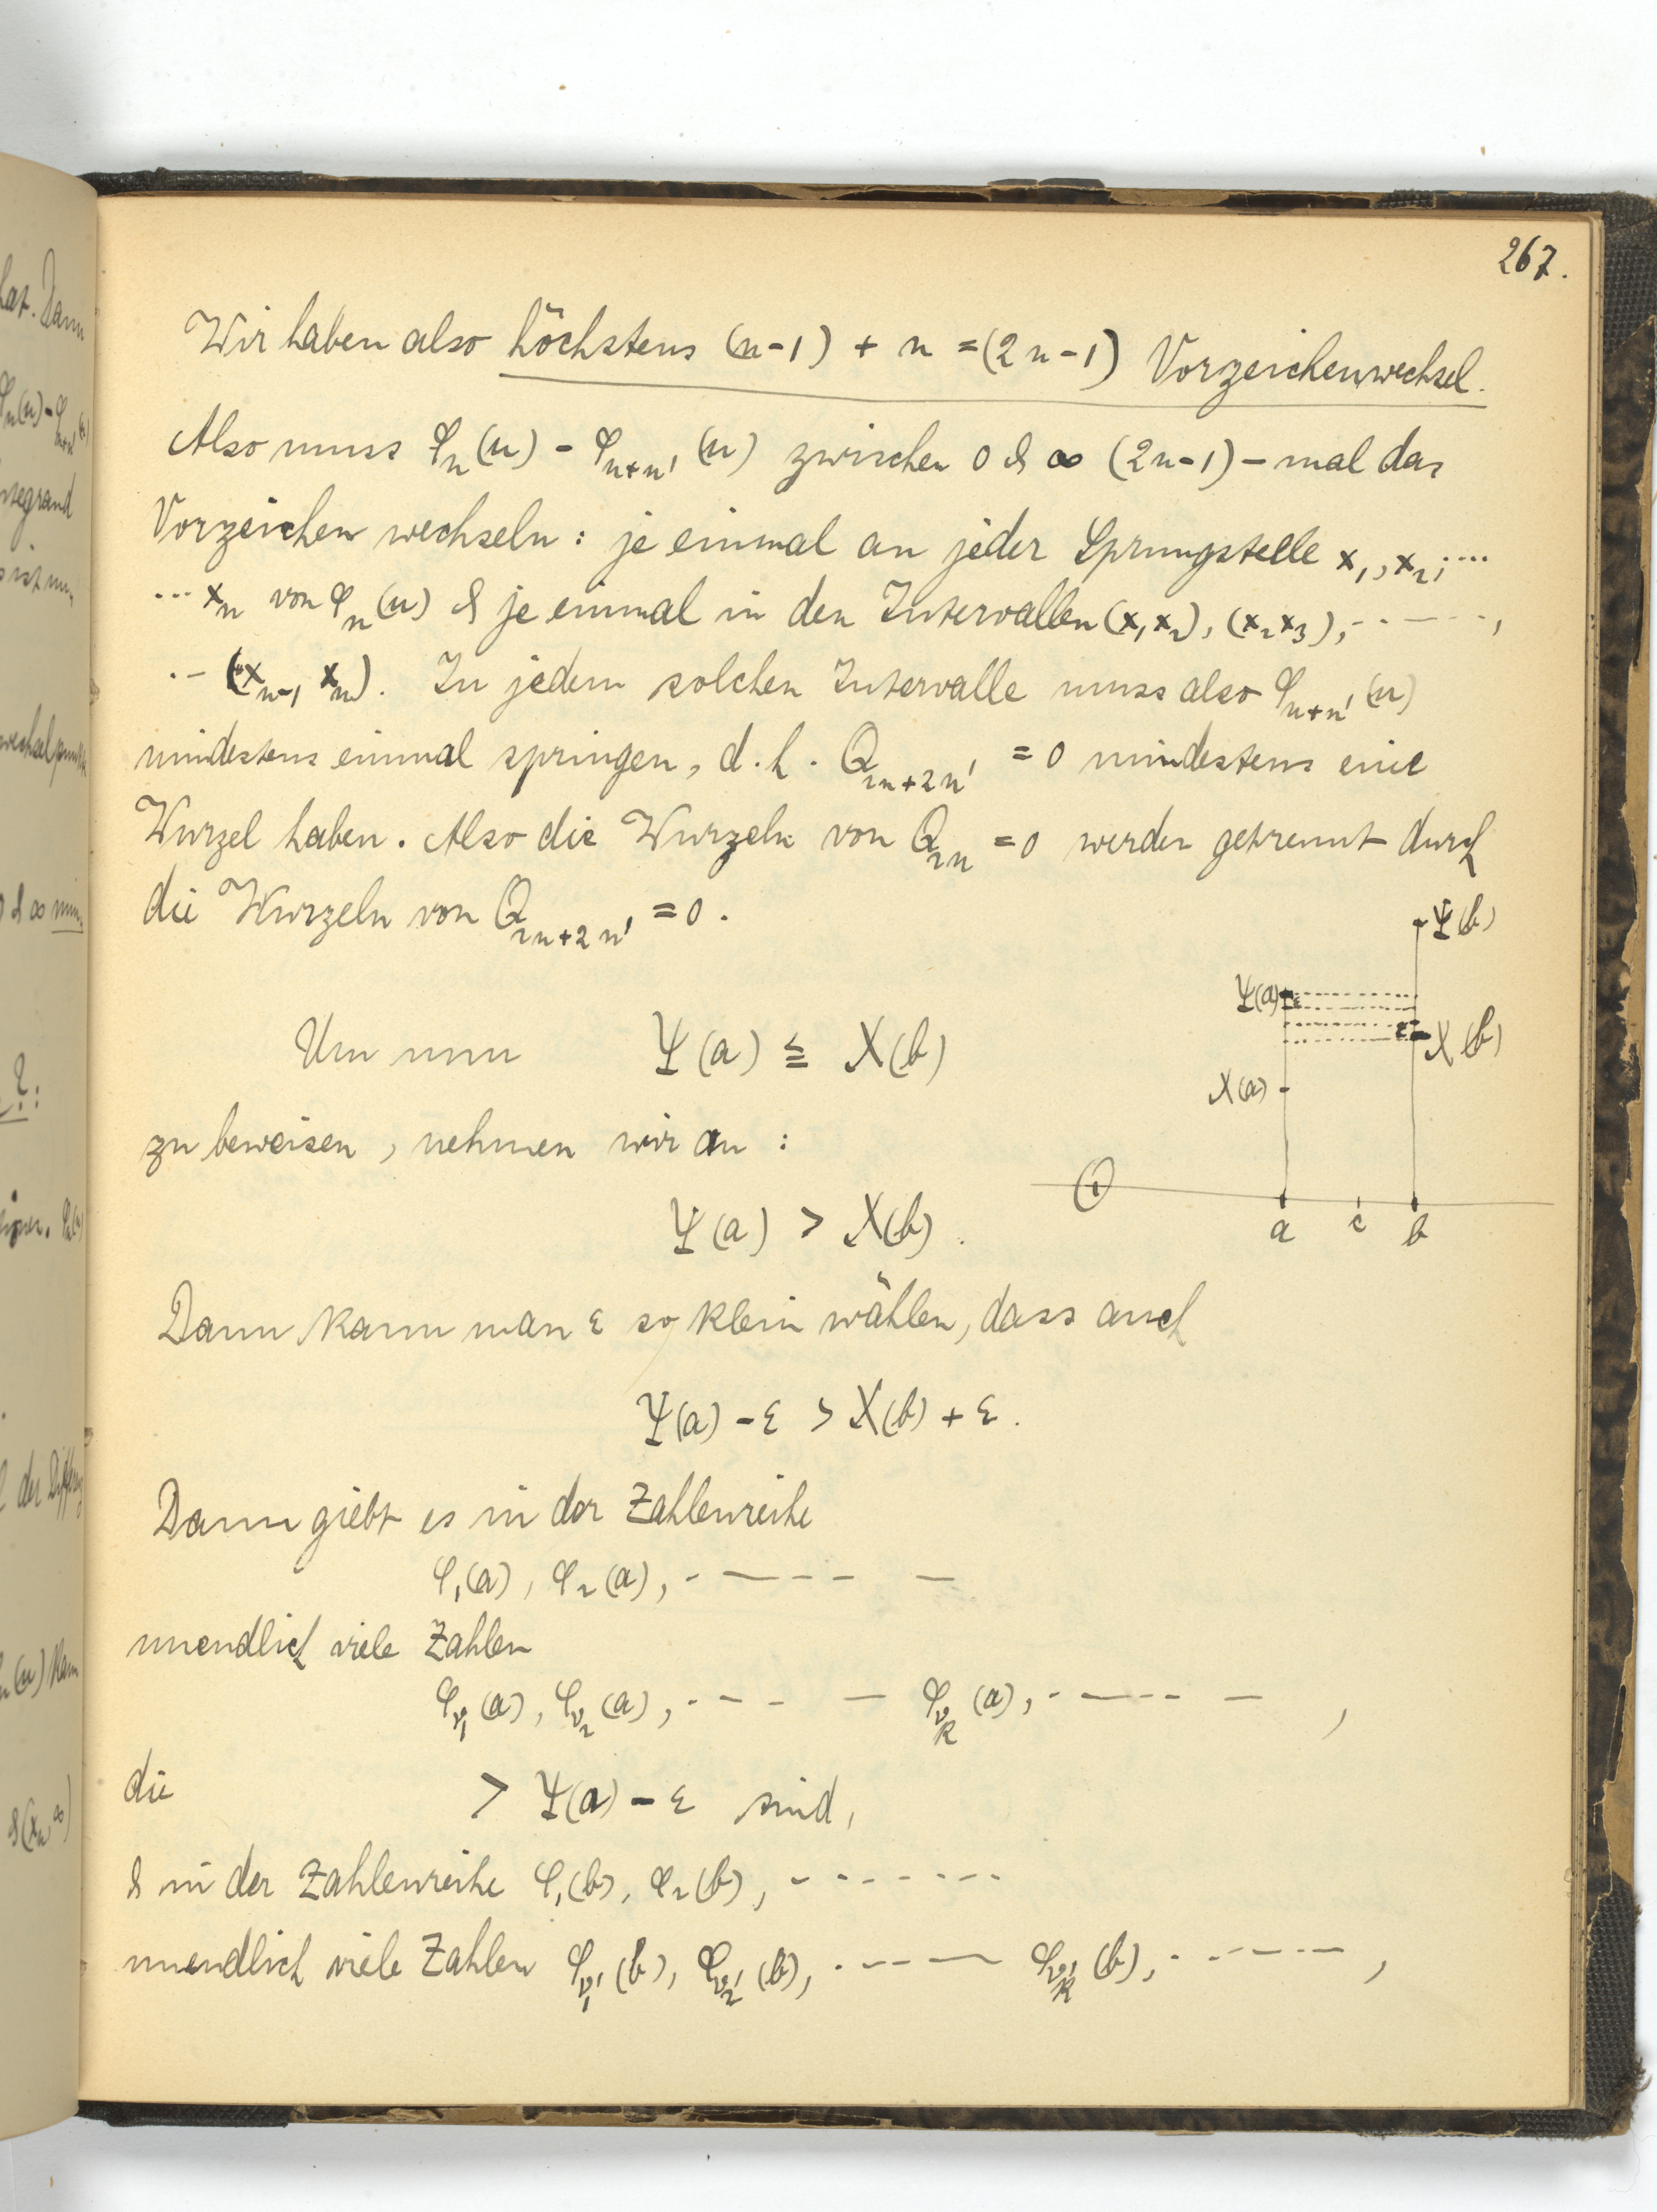 267.
Wir haben also höchstens (n-1) + n = (2n-1) Vorzeichenwechsel.
Also muss φₙ(u) - φₙ₊ₙ'(u) zwischen 0 & ∞ (2n-1)-mal das
Vorzeichen wechseln: je einmal an jeder Sprungstelle x₁, x₂, ....
... xₙ von φₙ(u) & je einmal in den Intervallen (x₁x₂), (x₂x₃), - - - - - ,
.- (xₙ₋₁ xₙ). In jedem solchen Intervalle muss also φₙ₊ₙ'(u)
mindestens einmal springen, d.h. Q₂ₙ₊₂ₙ' = 0 mindestens eine
Wurzel haben. Also die Wurzeln von Q₂ₙ = 0 werden getrennt durch
die Wurzeln von Q₂ₙ₊₂ₙ' = 0.
Ψ(b)
Ψ(a) ε
ε X(b)
X(a)
0
a c b
Um nun Ψ(a) ≦ X(b)
zu beweisen, nehmen wir an:
Ψ(a) > X(b).
Dann kann man ε so klein wählen, dass auch
Ψ(a) - ε > X(b) + ε.
Dann giebt es in der Zahlenreihe
φ₁(a), φ₂(a), - - - - - -
unendlich viele Zahlen
φ_ν₁(a), φ_ν₂(a), - - - - φ_νₖ(a), - - - - - ,
die > Ψ(a) - ε sind,
& in der Zahlenreihe φ₁(b), φ₂(b), - - - - - - -
unendlich viele Zahlen φ_ν₁'(b), φ_ν₂'(b), - - - - φ_νₖ'(b), - - - - - ,